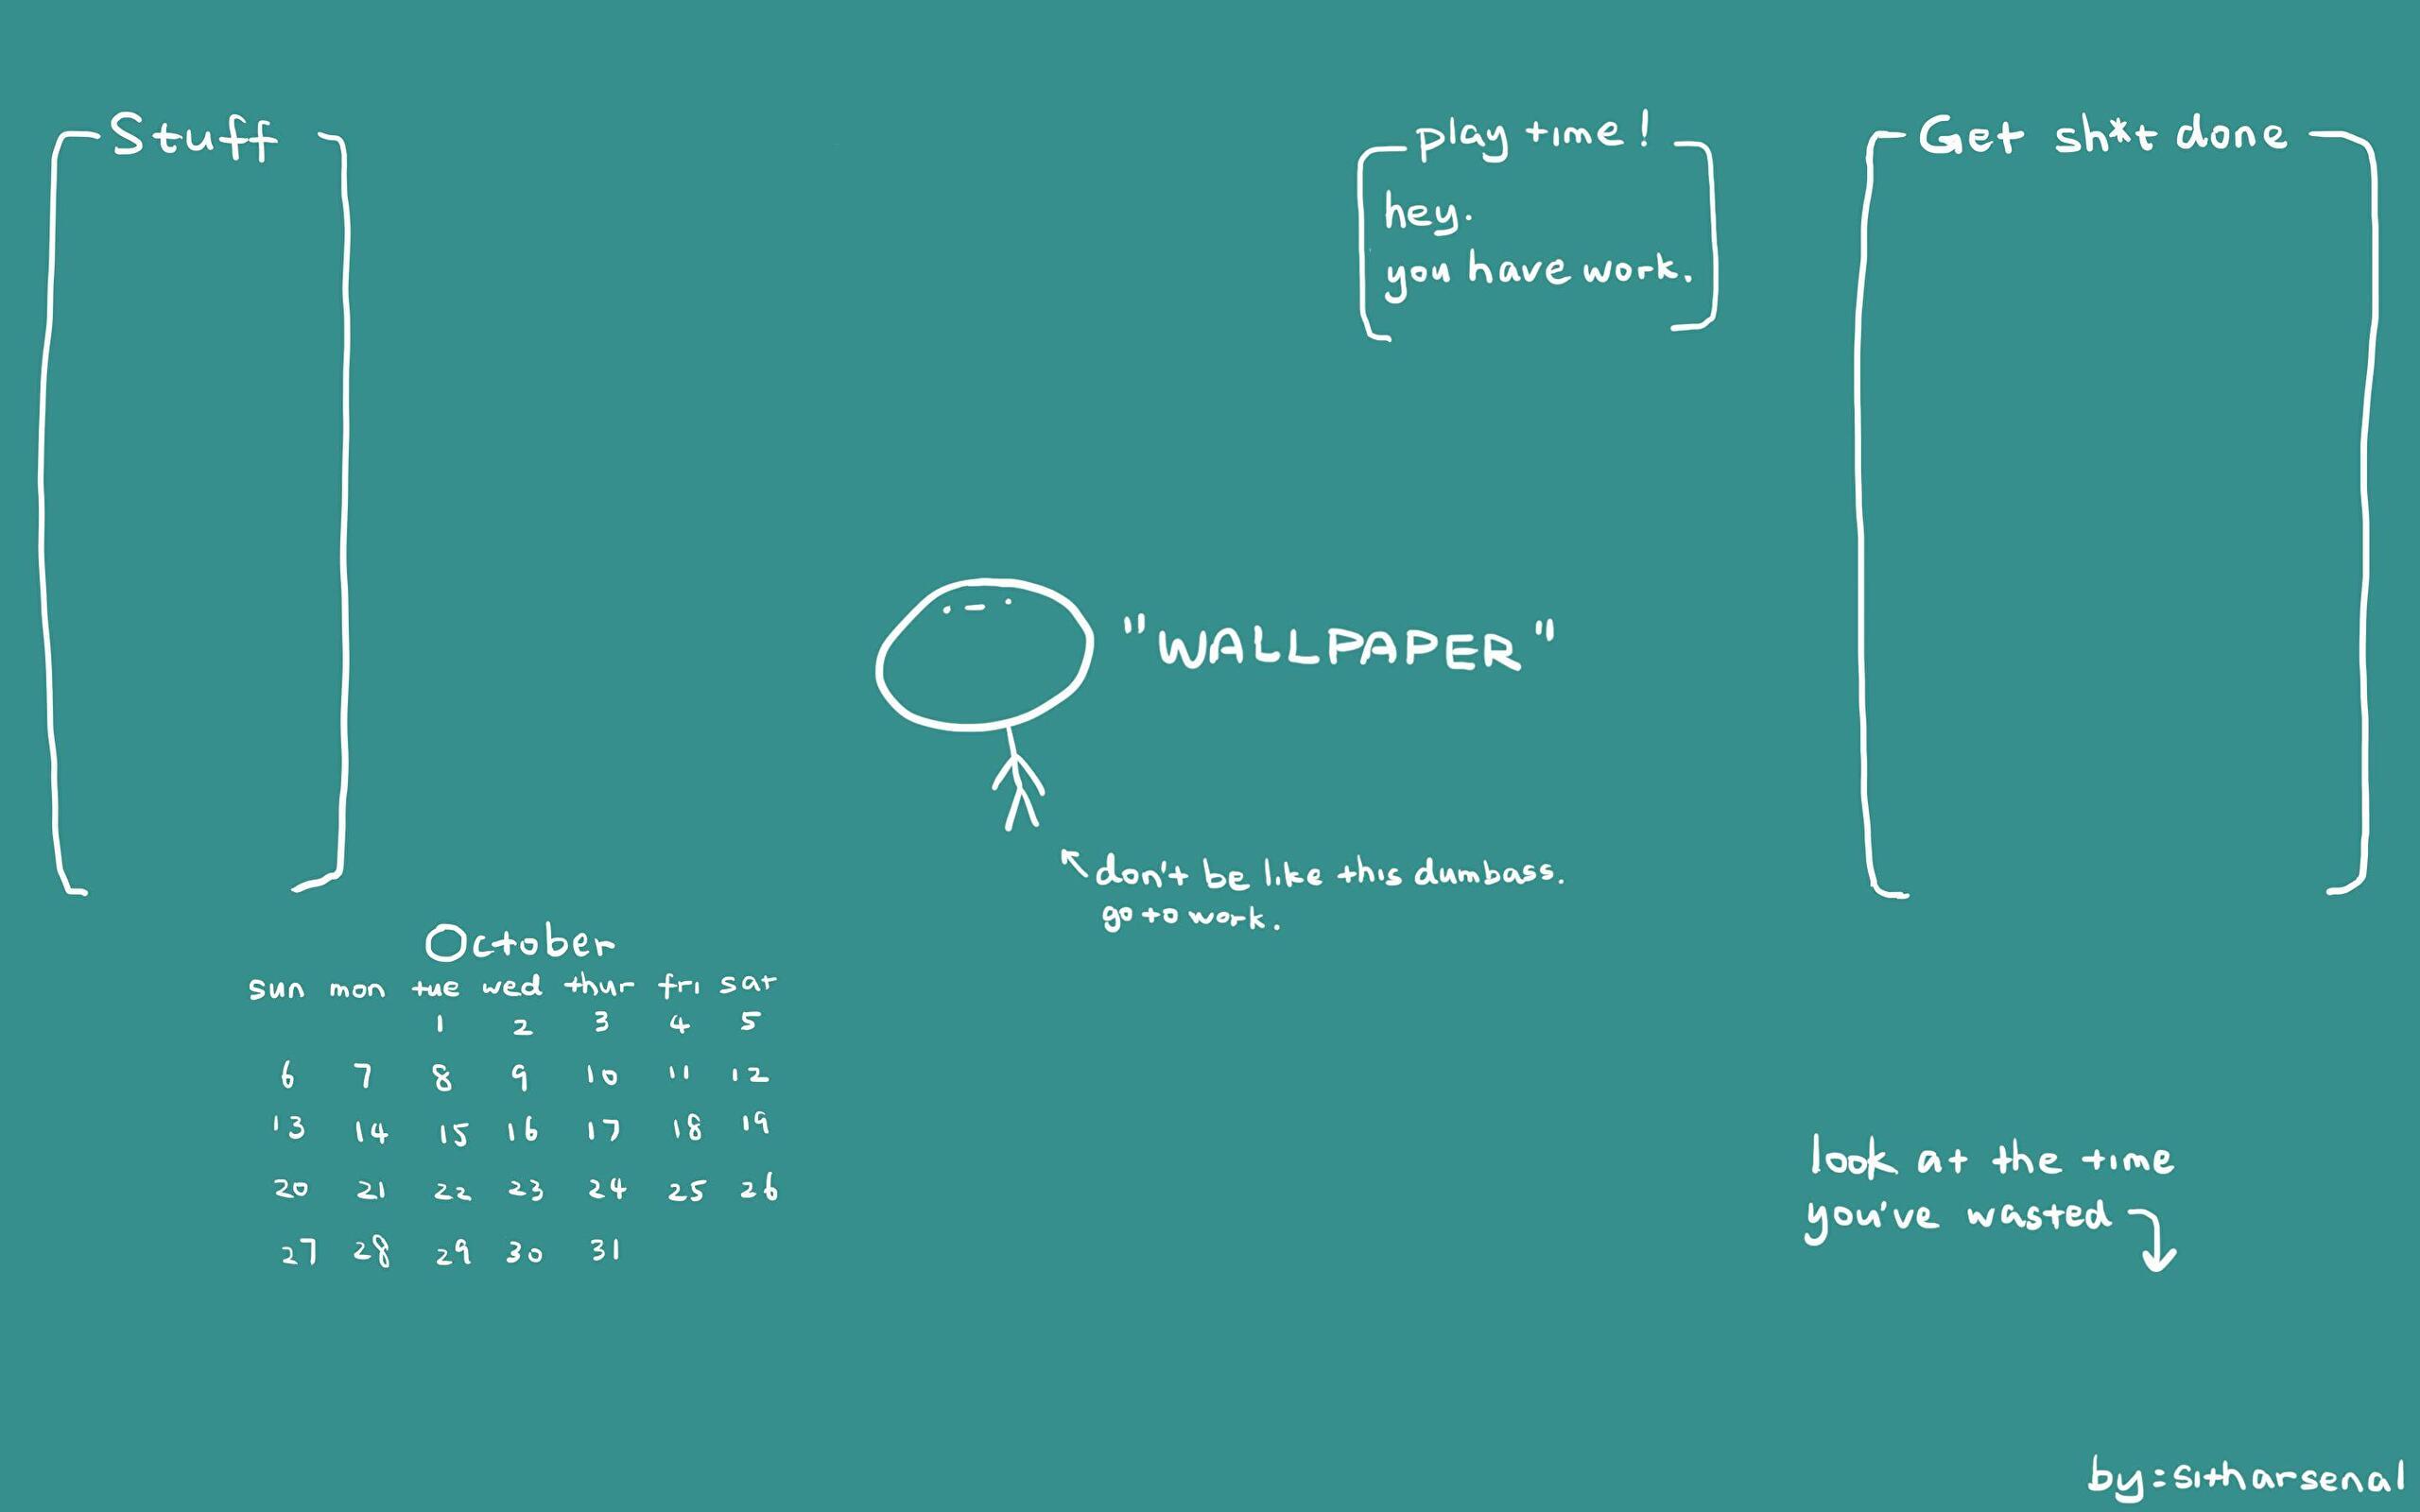 Stuff
play time!
hey.
you have work.
Get sh*t done
"WALLPAPER"
don't be like this dumbass.
go to work.
October
sun mon tue wed thur fri sat
1 2 3 4 5
6 7 8 9 10 11 12
13 14 15 16 17 18 19
20 21 22 23 24 25 26
27 28 29 30 31
look at the time
you've wasted
by=sitharsenal